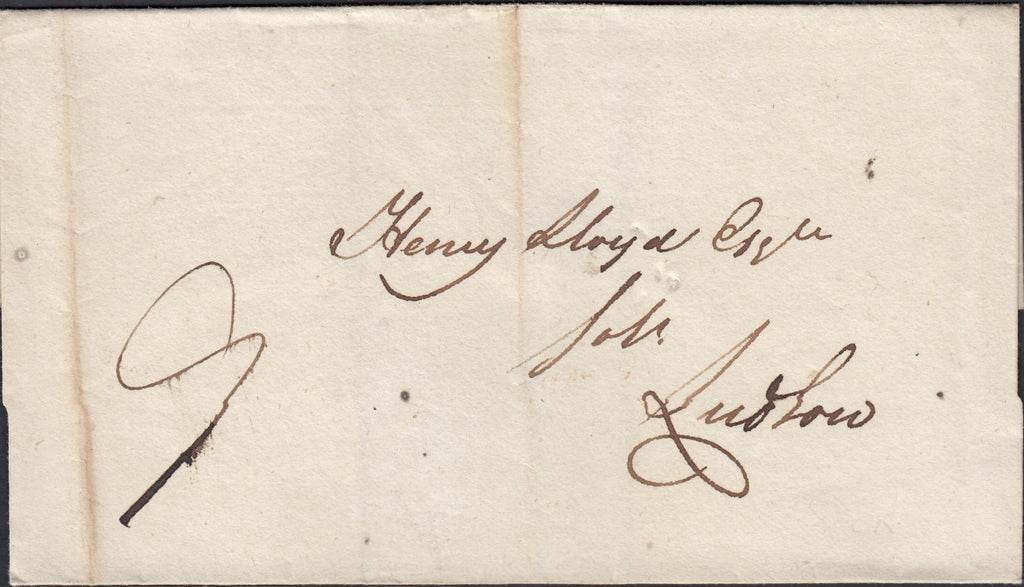 Henry Lloyd Esqre
Solr.
Ludlow
9